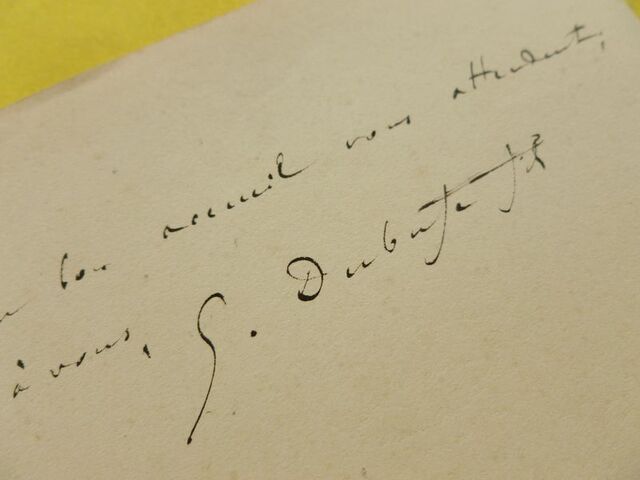 bon accueil vous attendent,
à vous, G. Dubufe fils